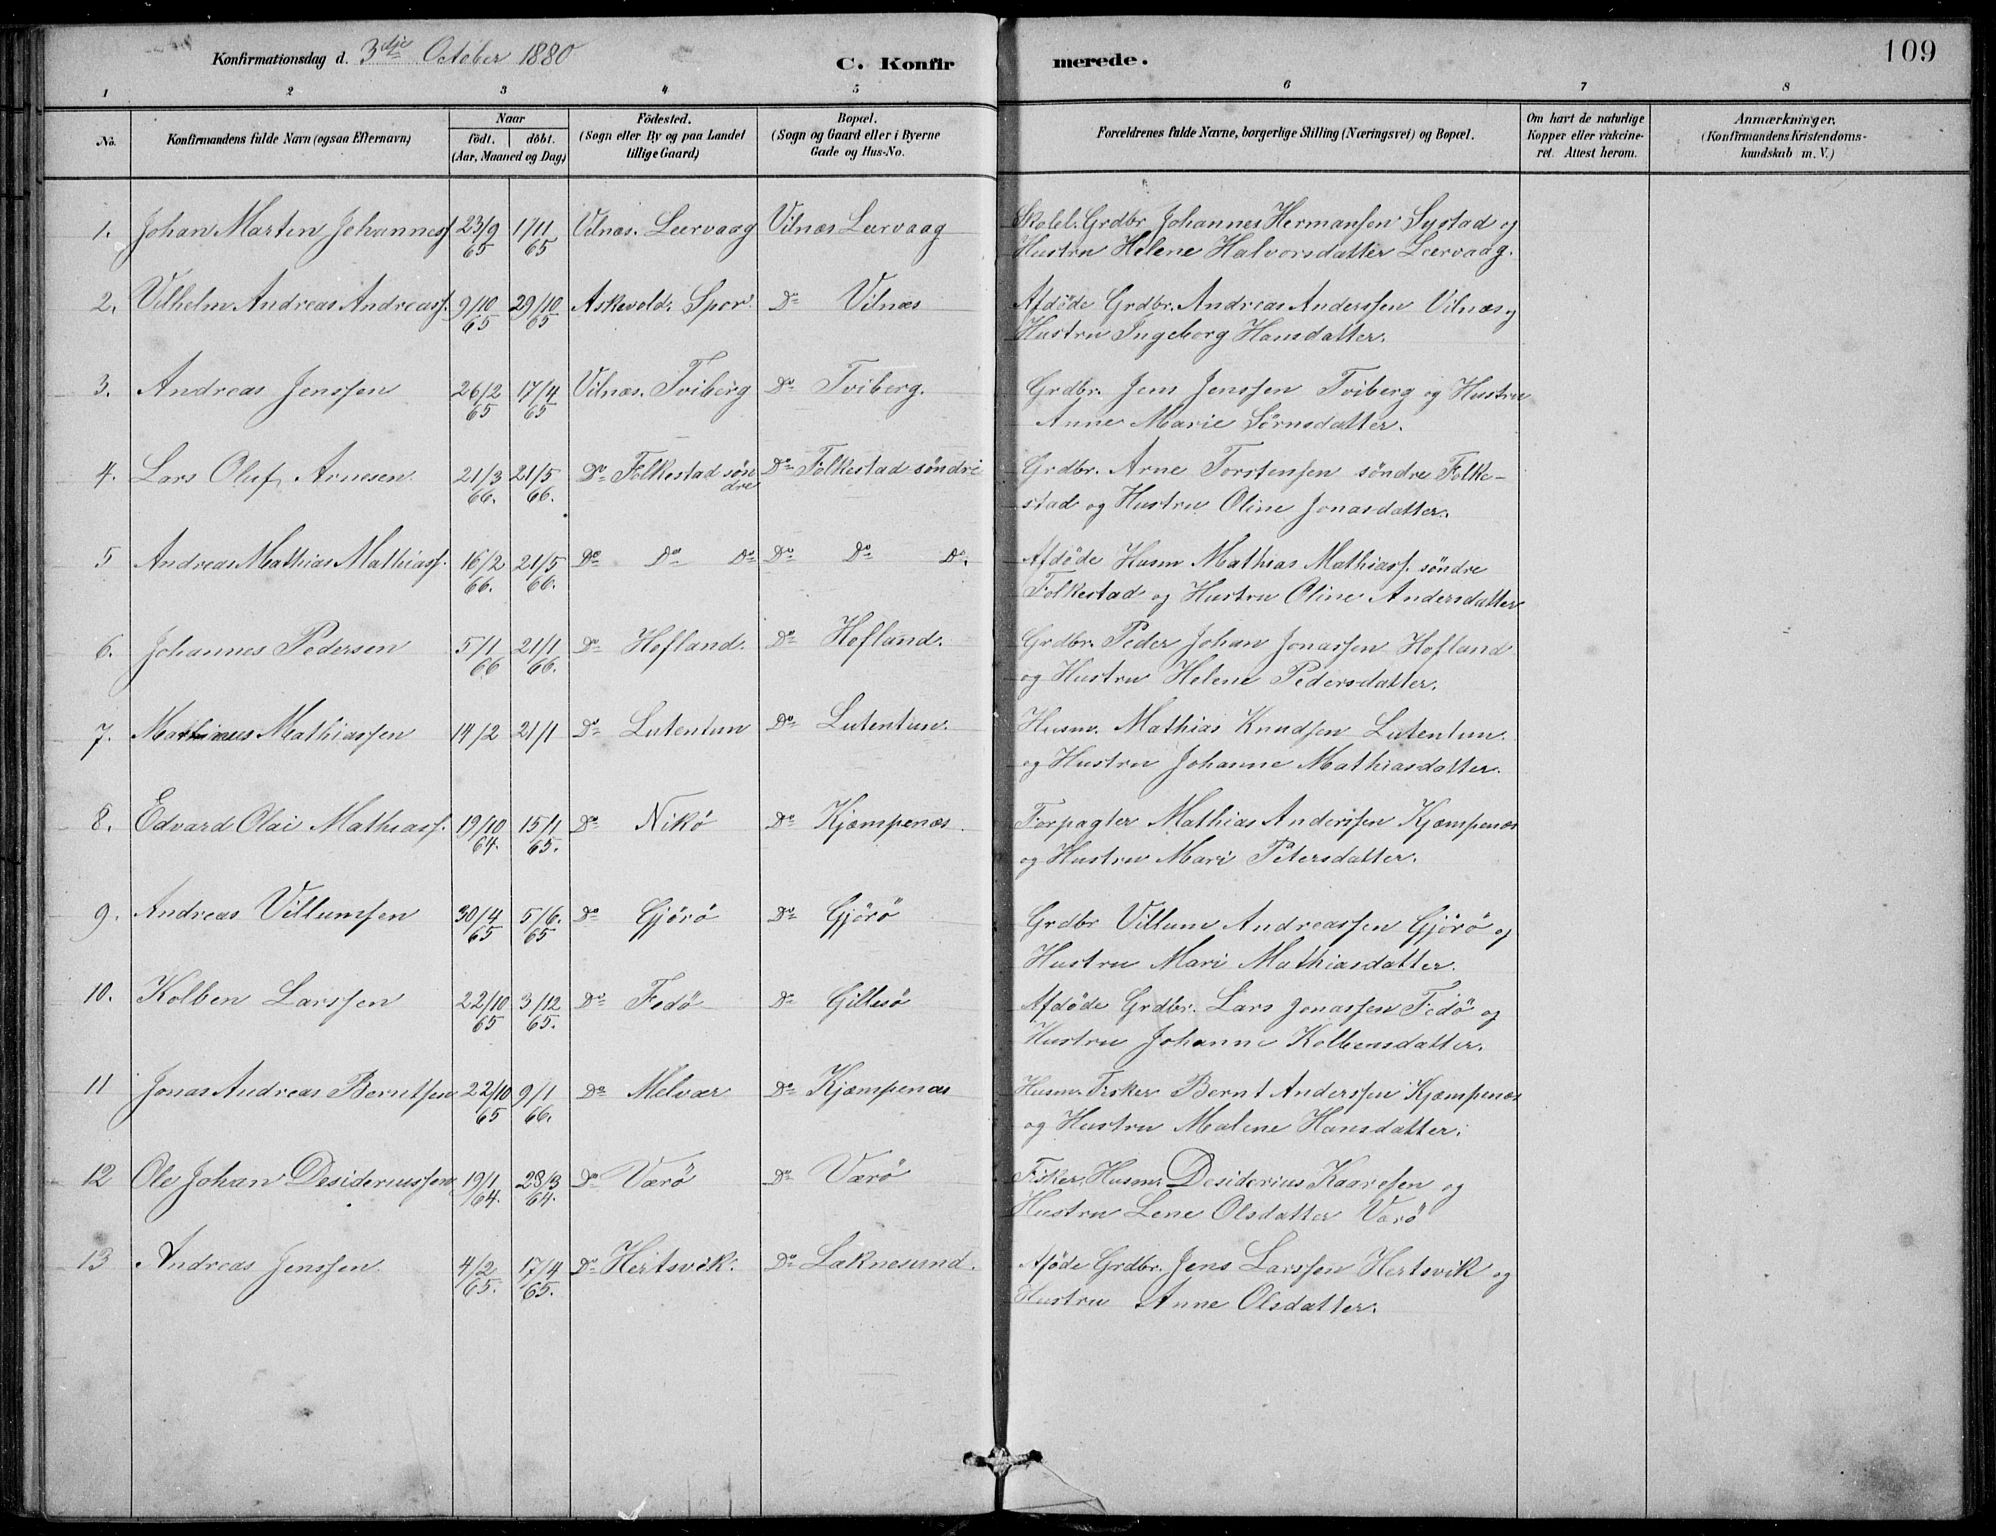 Konfirmationsdag d. 3die October 1880
C. Konfirmerede.
109
1 2 3 4 5 6 7 8
No. Konfirmandens fulde Navn (ogsaa Efternavn) Naar født. døbt. (Aar, Maaned og Dag) Fødested. (Sogn eller By og paa Landet tillige Gaard) Bopæl. (Sogn og Gaard eller i Byerne Gade og Hus-No. Forældrenes fulde Navne, borgerlige Stilling (Næringsvei) og Bopæl. Om havt de naturlige Kopper eller vakcineret. Attest herom. Anmærkninger. (Konfirmandens Kristendomskundskab m. V.)
1. Johan Martin Johannesf. 23/9 65 1/11 65 Vilnæs. Leervaag Vilnæs Leervaag Skolel. Grdbr Johannes Hermansen Systad og
Hustru Helene Halvorsdatter Leervaag.
2. Vilhelm Andreas Andreasf. 9/10 65 29/10 65 Askevold. Spor. Do Vilnæs Afdøde Grdbr. Andreas Anderssen Vilnæs og
Hustru Ingeborg Hansdatter.
3. Andreas Jenssen 26/2 65 17/4 65 Vilnæs. Tviberg Do Tviberg. Grdbr. Jens Jenssen Tviberg og Hustru
Anne Marie Sörnsdatter.
4. Lars Oluf Arnesen. 21/3 66. 21/5 66. Do Folkestad søndre Do Folkestad søndre Grdbr. Arne Torstensen søndre Folke-
stad og Hustru Oline Jonasdatter.
5 Andreas Mathias Mathiasf. 16/2 66. 21/5 66. Do Do Do Do Do Do. Afdøde Husm Mathias Mathiasf. søndre
Folkestad og Hustru Oline Andersdatter
6. Johannes Pedersen 5/1 66 21/1 66. Do Hofland. Do Hofland. Grdbr. Peder Johan Jonassen Hofland
og Hustru Helene Pedersdatter.
7. Mathias Mathiassen 14/2 21/1 Do Lutentun Do Lutentun. Husm. Mathias Knudsen Lutentun.
og Hustru Johanne Mathiasdatter.
8. Edvard Olai Mathiasf. 19/10 64. 15/1 65. Do Nikø Do Kjæmpenæs. Forpagter Mathias Anderssen Kjæmpenæs
og Hustru Mari Petersdatter.
9. Andreas Villumssen 30/4 65 5/6. 65 Do Gjörö Do Gjörö Grdbr Villum Andreassen Gjörö og
Hustru Mari Mathiasdatter.
10. Kolben Larssen 22/10 65 3/12 65. Do Fedö Do Gillesö Afdøde Grdbr. Lars Jonassen Fedö og
Hustru Johanne Kolbensdatter.
11 Jonas Andreas Berntsen 22/10 65 9/1 66. Do Melvær Do Kjæmpenæs Husm. Fisker Bernt Anderssen Kjæmpenæs
og Hustru Malene Hansdatter.
12 Ole Johan Desideriussen 19/1 64. 28/3 64. Do Værö Do Værö Fisker. Husm. Desiderius Kaaresen og
Hustru Lene Olsdatter Værö
13 Andreas Jenssen. 4/2 65. 17/4 65. Do Hertsvik. Do Laknesund. Aføde Grdbr. Jens Larssen Hertsvik og
Hustru Anne Olsdatter.